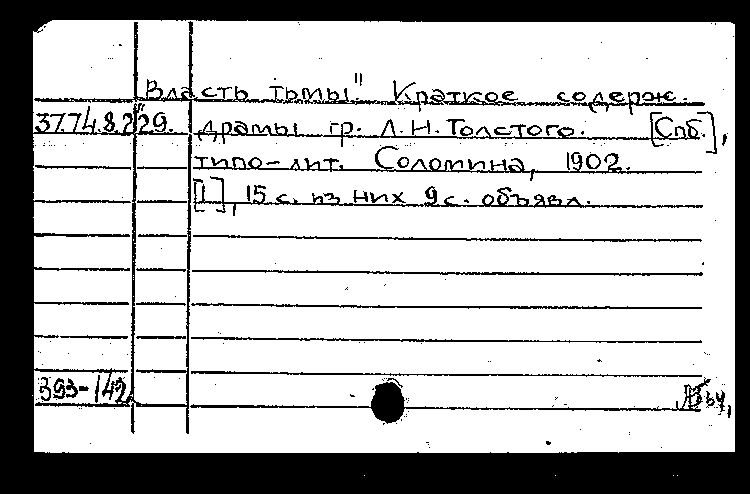 "Власть тьмы" Краткое содерж.
37.74.8.229. драмы гр. Л.Н.Толстого. [Спб.],
типо-лит. Соломина, 1902.
[1], 15 с. из них 9 с. объявл.
393-142